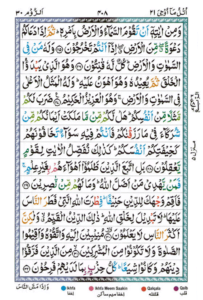 اُتْلُ مَآ اُوْحِىَ ٢١ ٣٠٨ اَلرُّوْم ٣٠
وَمِنْ اٰيٰتِهٖٓ اَنْ تَقُوْمَ السَّمَآءُ وَالْاَرْضُ بِاَمْرِهٖ ثُمَّ اِذَا دَعَاكُمْ
دَعْوَةً مِّنَ الْاَرْضِ اِذَآ اَنْتُمْ تَخْرُجُوْنَ وَلَهٗ مَنْ فِى
السَّمٰوٰتِ وَالْاَرْضِ كُلٌّ لَّهٗ قٰنِتُوْنَ وَهُوَ الَّذِىْ يَبْدَؤُا
الْخَلْقَ ثُمَّ يُعِيْدُهٗ وَهُوَ اَهْوَنُ عَلَيْهِ وَلَهُ الْمَثَلُ الْاَعْلٰى
فِى السَّمٰوٰتِ وَالْاَرْضِ وَهُوَ الْعَزِيْزُ الْحَكِيْمُ ضَرَبَ لَكُمْ
مَّثَلًا مِّنْ اَنْفُسِكُمْ هَلْ لَّكُمْ مِّنْ مَّا مَلَكَتْ اَيْمَانُكُمْ مِّنْ
شُرَكَآءَ فِىْ مَا رَزَقْنٰكُمْ فَاَنْتُمْ فِيْهِ سَوَآءٌ تَخَافُوْنَهُمْ
كَخِيْفَتِكُمْ اَنْفُسَكُمْ كَذٰلِكَ نُفَصِّلُ الْاٰيٰتِ لِقَوْمٍ
يَّعْقِلُوْنَ بَلِ اتَّبَعَ الَّذِيْنَ ظَلَمُوْٓا اَهْوَآءَهُمْ بِغَيْرِ عِلْمٍ
فَمَنْ يَّهْدِىْ مَنْ اَضَلَّ اللّٰهُ وَمَا لَهُمْ مِّنْ نّٰصِرِيْنَ
فَاَقِمْ وَجْهَكَ لِلدِّيْنِ حَنِيْفًا فِطْرَتَ اللّٰهِ الَّتِىْ فَطَرَ
النَّاسَ عَلَيْهَا لَا تَبْدِيْلَ لِخَلْقِ اللّٰهِ ذٰلِكَ الدِّيْنُ الْقَيِّمُ وَلٰكِنَّ
اَكْثَرَ النَّاسِ لَا يَعْلَمُوْنَ مُنِيْبِيْنَ اِلَيْهِ وَاتَّقُوْهُ وَاَقِيْمُوا
الصَّلٰوةَ وَلَا تَكُوْنُوْا مِنَ الْمُشْرِكِيْنَ مِنَ الَّذِيْنَ فَرَّقُوْا
دِيْنَهُمْ وَكَانُوْا شِيَعًا كُلُّ حِزْبٍۭ بِمَا لَدَيْهِمْ فَرِحُوْنَ